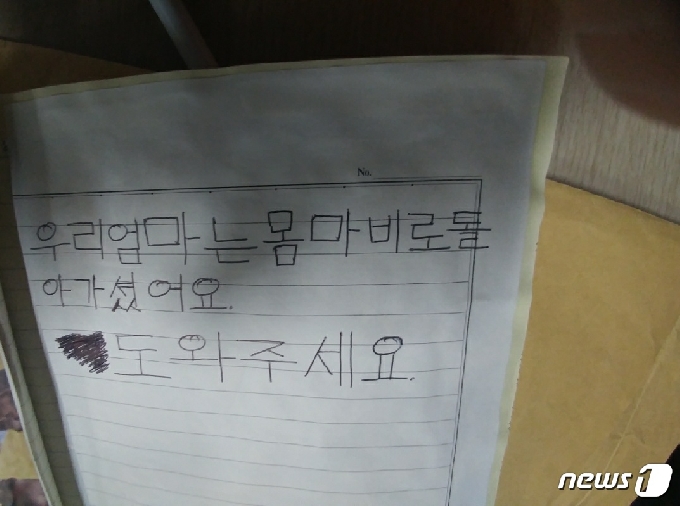 No.
우리엄마는 몸마비로돌
아가셨어요.
도와주세요.
news1